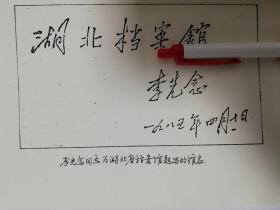 湖北档案館
李先念
一九八五年四月十日
李先念同志为湖北省档案馆题写的馆名